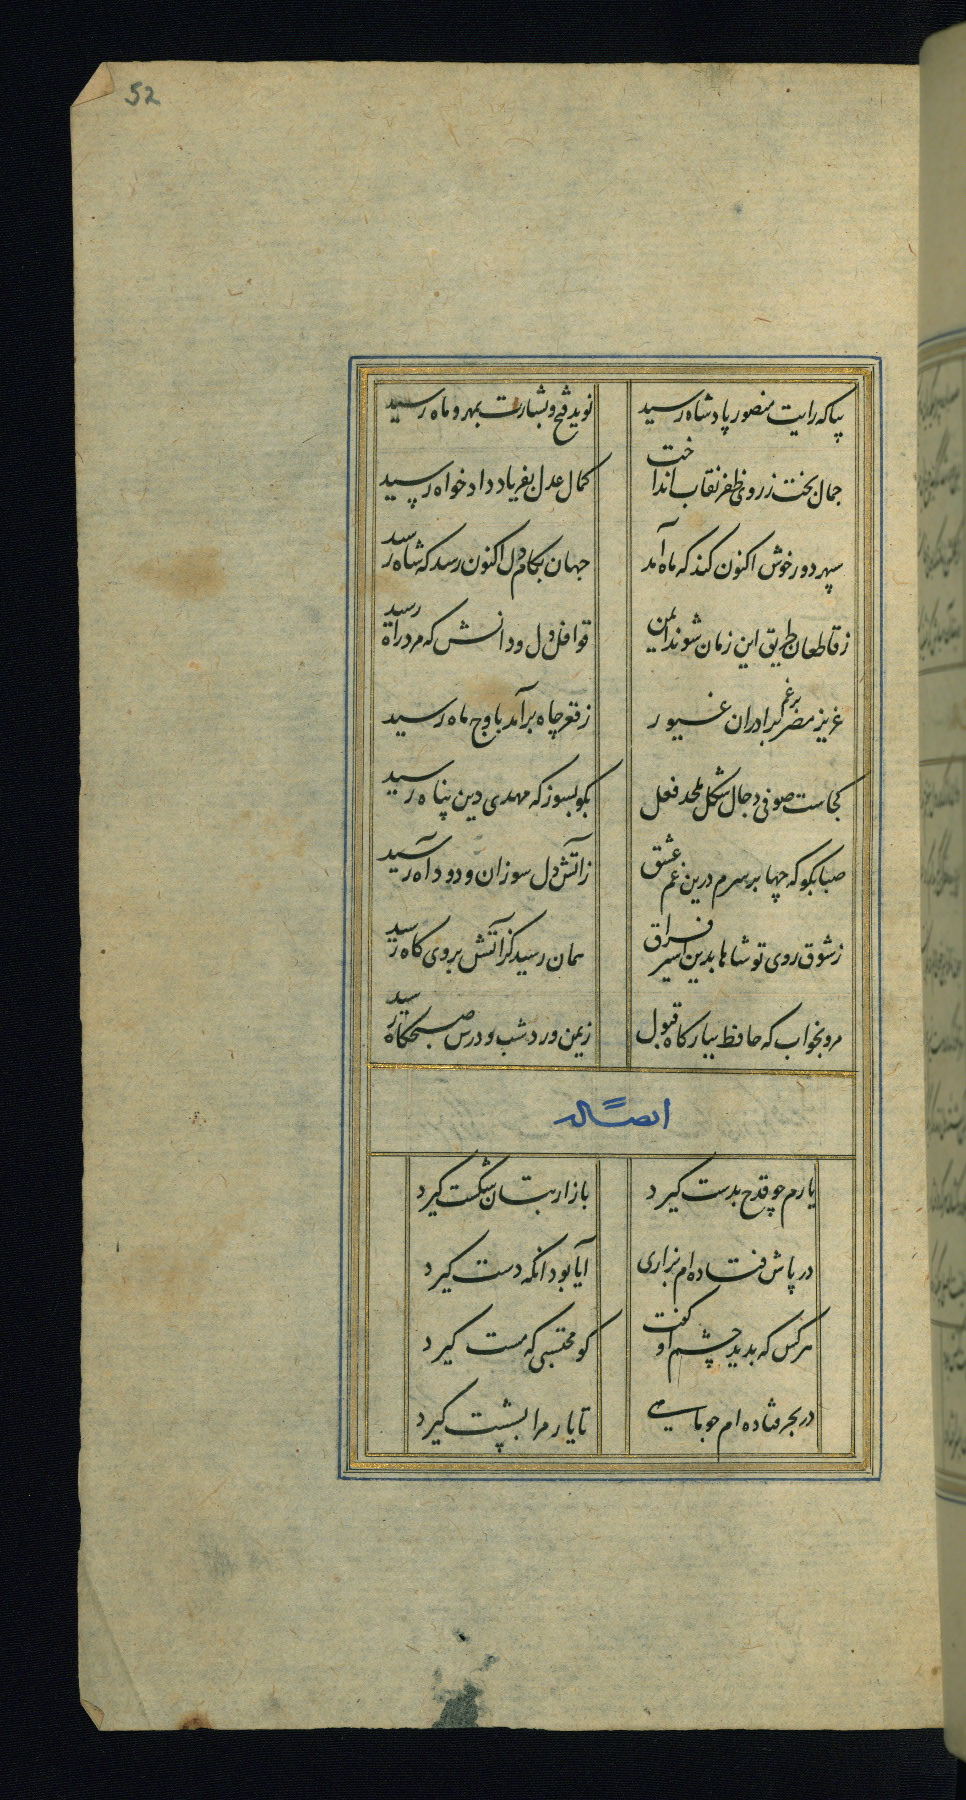 52
بیا که رایت منصور پادشاه رسید نوید فتح و بشارت بمهر و ماه رسید
جمال بخت ز روی ظفر نقاب انداخت کمال عدل بفریاد دادخواه رسید
سپهر دور خوش اکنون کند که ماه آمد جهان بکام دل اکنون رسد که شاه رسید
ز قاطعان طریق این زمان شوند ایمن قوافل دل و دانش که مرد راه رسید
عزیز مصر برغم برادران غیور ز قعر چاه برآمد باوج ماه رسید
کجاست صوفی دجال شکل ملحد فعل بکو بسوز که مهدی دین پناه رسید
صبا بکو که چها بر سرم درین غم عشق ز آتش دل سوزان و دود آه رسید
ز شوق روی تو شاها بدین اسیر فراق همان رسید کز آتش بروی کاه رسید
مرو بخواب که حافظ ببارکاه قبول ز یمن ورد شب و درس صبحکاه رسید
ایضا له
یارم چو قدح بدست کیرد بازار بتان شکست کیرد
در پاش فتاده ام بزاری آیا بود آنکه دست کیرد
هر کس که بدید چشم او کفت کو محتسبی که مست کیرد
در بحر فتاده ام چو ماهی تا یار مرا بشست کیرد